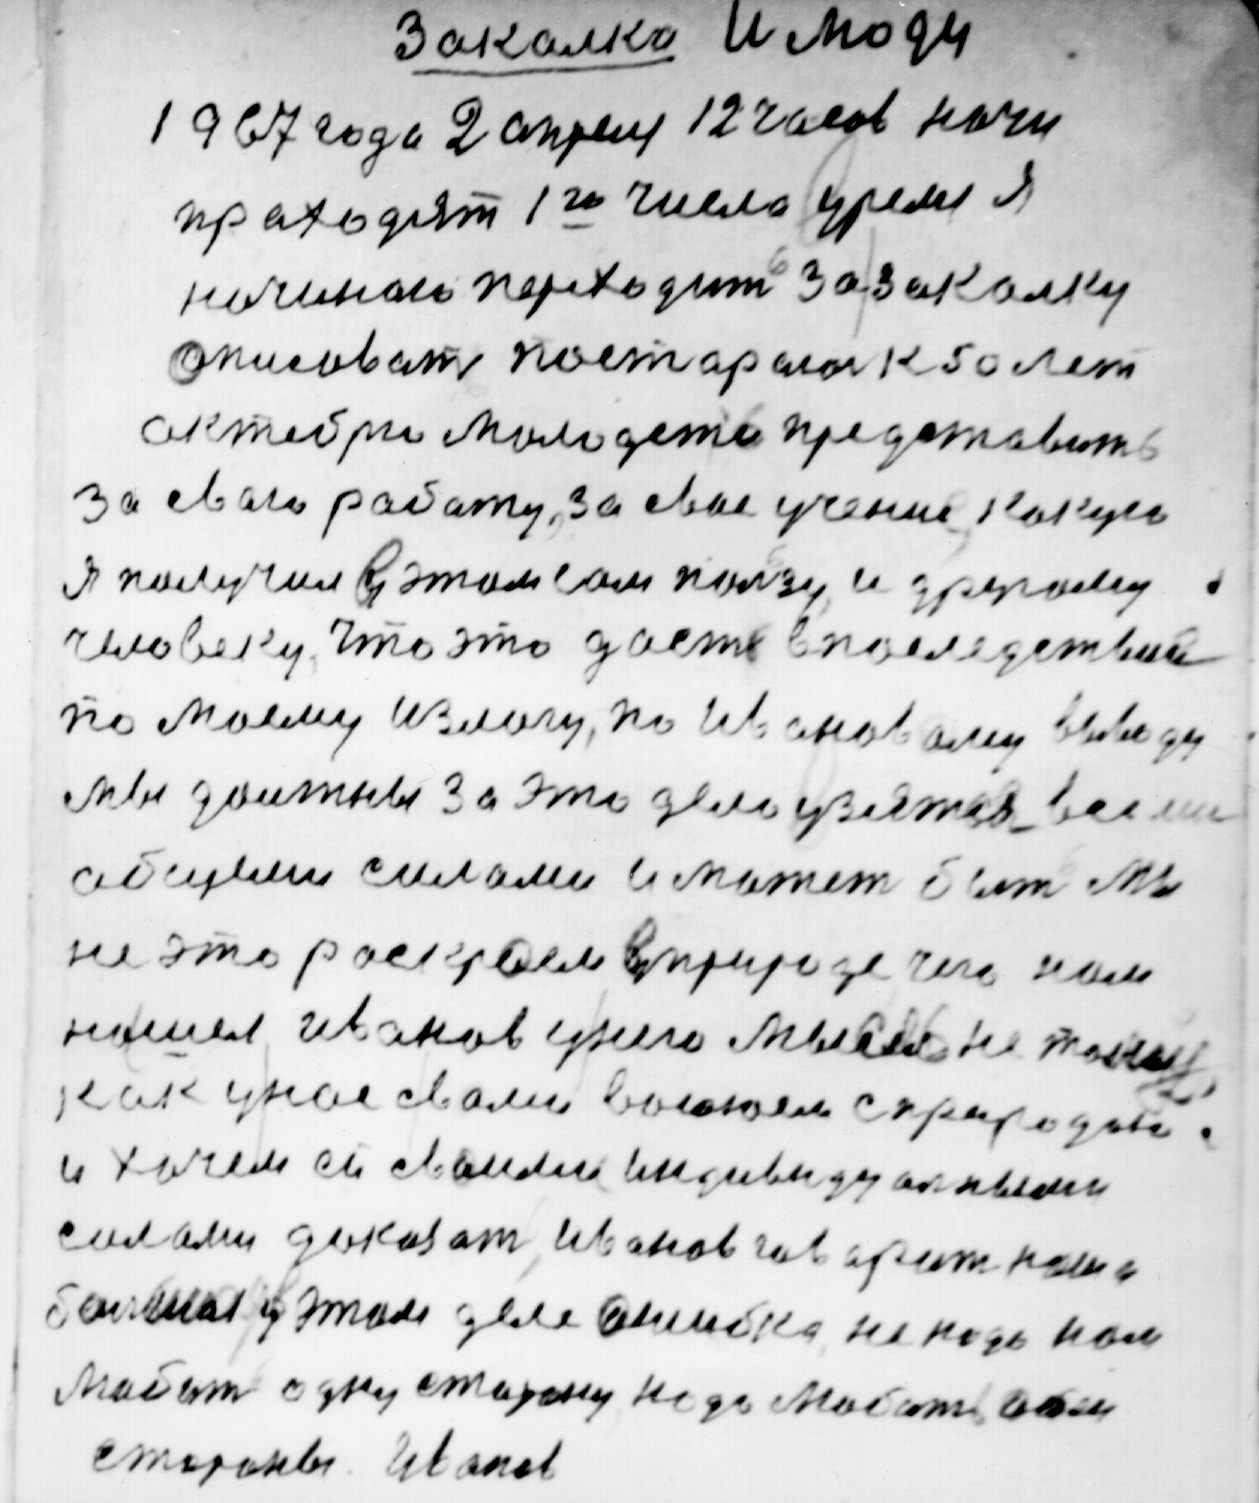 Закалка И люди
1967 года 2 апреля 12 часов ночи
праходят 1го числа уремя Я
начинаю переходить За Закалку
описоват постараюся к 50 лет
октебрю Молодёти представить
За сваю работу, за свое учение, какую
Я получил в этом сам ползу, и другому
человеку, что это даст в последствие
по моему излогу, по Ивановому выводу
мы долтны За это дело узятся всеми
обцыми силами и мотет быт Мы
не это раскроем в природе чего нам
нашел Иванов у него мысль не такая
как у нас свами воюем с природою
и хочем сы своими индивидуалными
силами доказат, Иванов гаварит наша
болшая у этом деле ошибка, не надо нам
Любит одну старану надо Любить обеи
стараны. Иванов